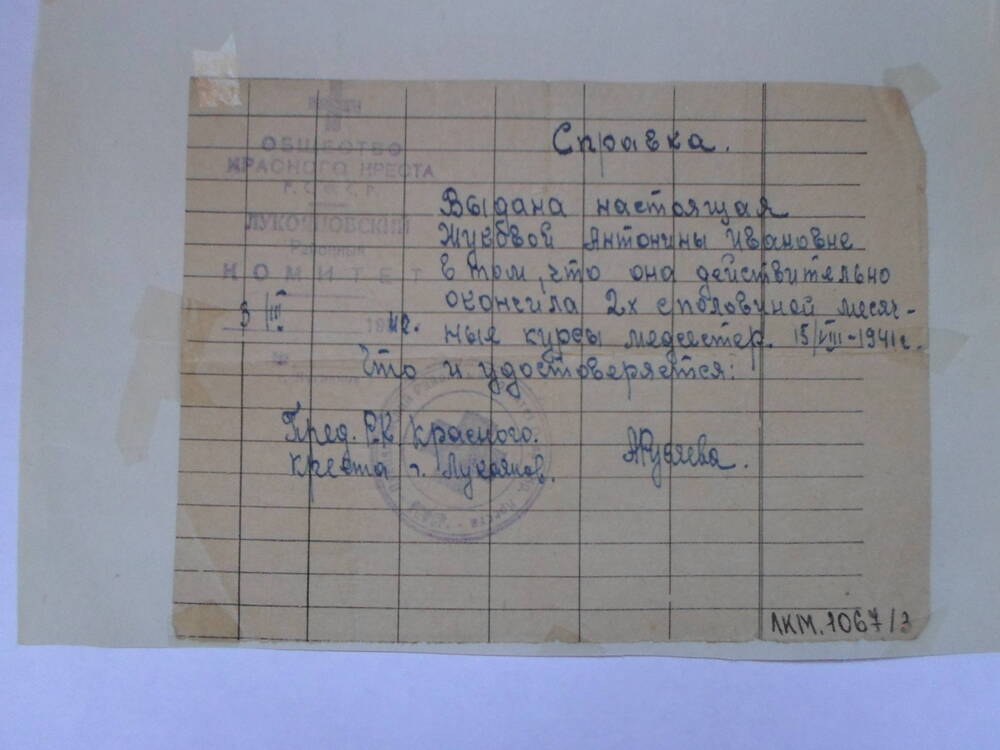 ОБЩЕСТВО
КРАСНОГО КРЕСТА
Р. С. Ф. С. Р.
ЛУКОЯНОВСКИЙ
Районный
КОМИТЕТ
3/III 1942.
Справка.
Выдана настоящая
Жуковой Антонины Ивановне
в том, что она действительно
окончила 2х с половиной месяч-
ные курсы медсестер. 15/VIII-1941г.
Что и удостоверяется:
Пред. РК Красного.
Креста г. Лукоянов.
ЛКМ.1067/3